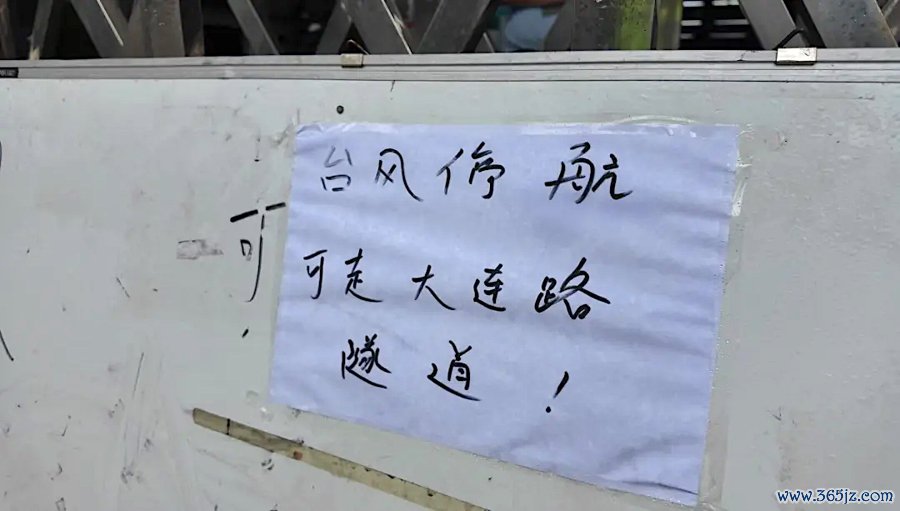 台风停航
可走大连路
隧道！
可
www.365jz.com